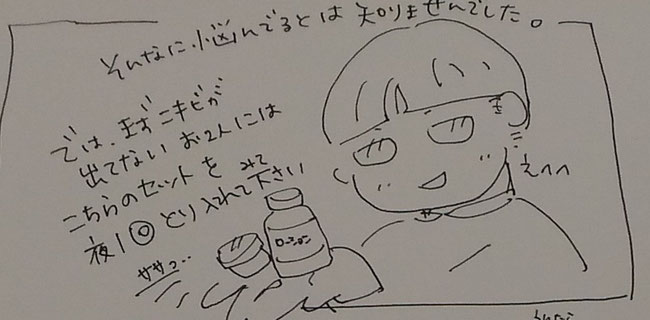 そんなに悩んでるとは知りませんでした。
では、まずニキビが
出てないお2人には
こちらのセットを
夜1回とり入れてみて下さい
ローション
ササッ…
えへへ